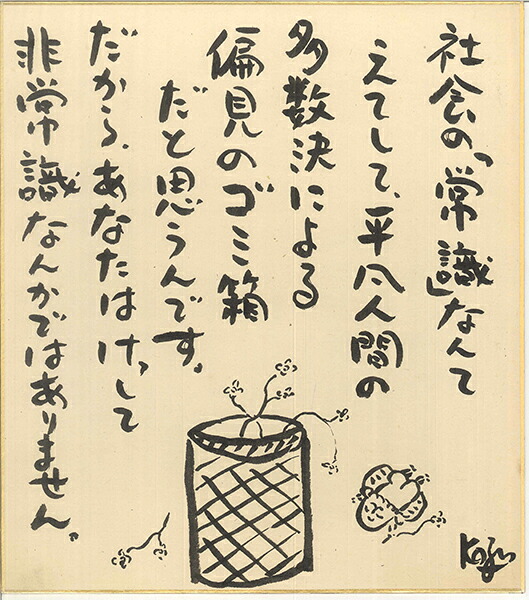 社会の「常識」なんて
えてして、平凡人間の
多数決による
偏見のゴミ箱
だと思うんです。
だから、あなたはけっして
非常識なんかではありません。